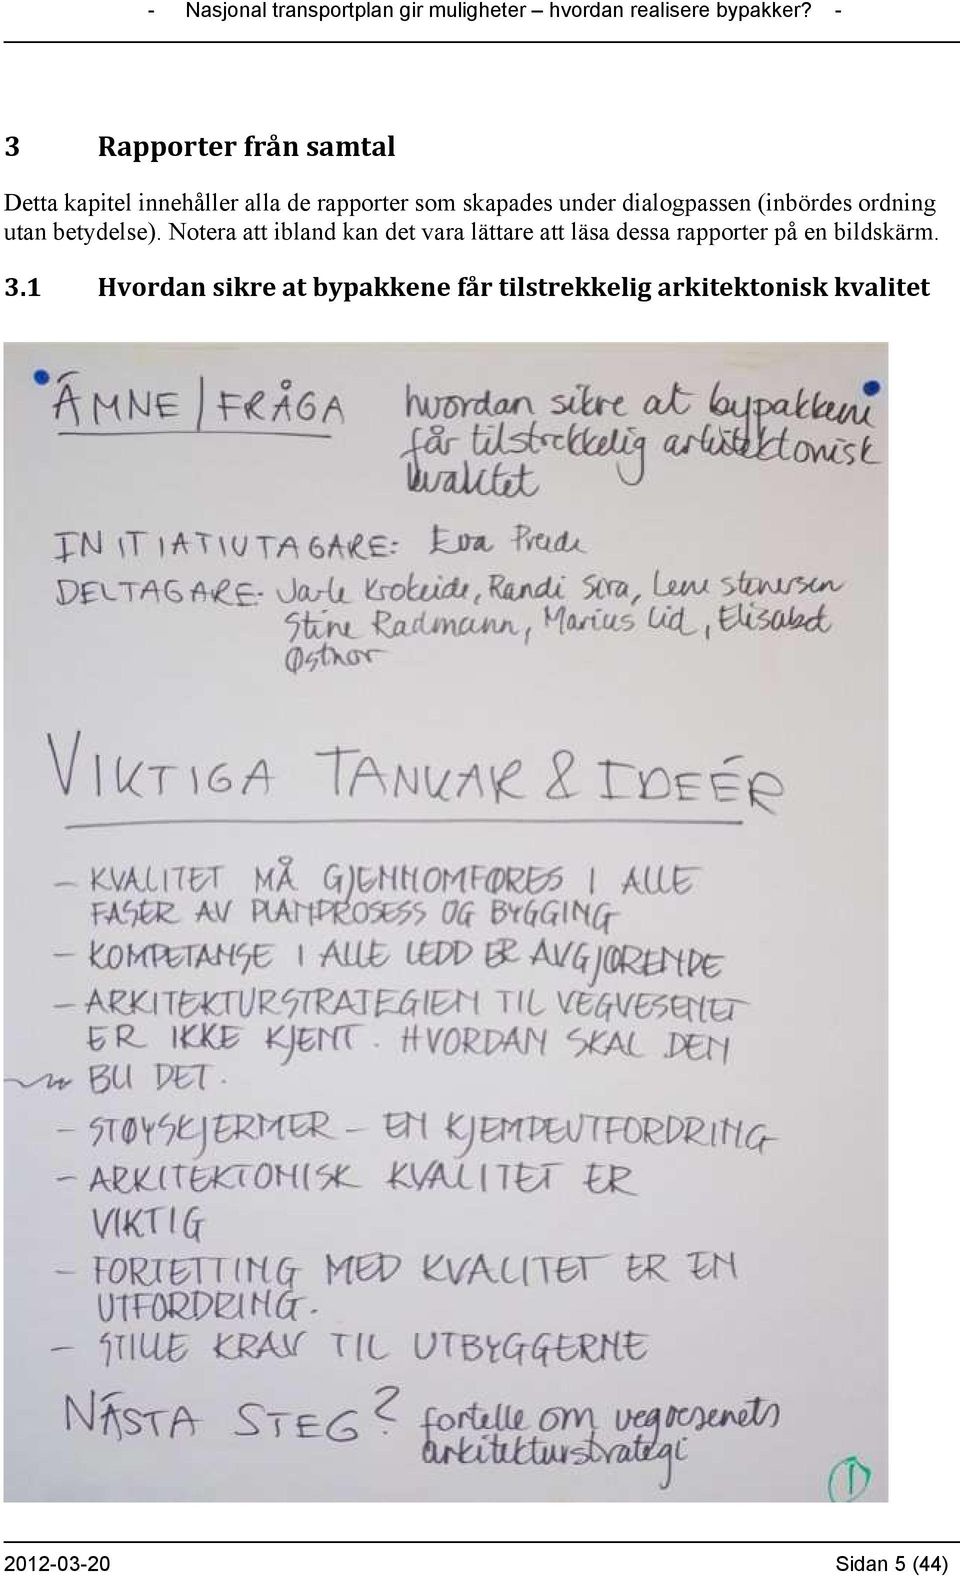 - Nasjonal transportplan gir muligheter – hvordan realisere bypakker? -
3 Rapporter från samtal
Detta kapitel innehåller alla de rapporter som skapades under dialogpassen (inbördes ordning
utan betydelse). Notera att ibland kan det vara lättare att läsa dessa rapporter på en bildskärm.
3.1 Hvordan sikre at bypakkene får tilstrekkelig arkitektonisk kvalitet
ÄMNE/FRÅGA hvordan sikre at bypakkene
får tilstrekkelig arkitektonisk
kvalitet
INITIATIVTAGARE: Eva Preede
DELTAGARE: Jarle Krokeide, Randi Sira, Lene Stenersen
Stine Radmann, Marius Lid, Elisabet
Østnor
VIKTIGA TANKAR & IDEÉR
- KVALITET MÅ GJENNOMFØRES I ALLE
FASER AV PLANPROSESS OG BYGGING
- KOMPETANSE I ALLE LEDD ER AVGJØRENDE
- ARKITEKTURSTRATEGIEN TIL VEGVESENET
ER IKKE KJENT. HVORDAN SKAL DEN
BLI DET.
- STØYSKJERMER - EN KJEMPEUTFORDRING
- ARKITEKTONISK KVALITET ER
VIKTIG
- FORTETTING MED KVALITET ER EN
UTFORDRING.
- STILLE KRAV TIL UTBYGGERNE
NÄSTA STEG? fortelle om vegvesenets
arkitekturstrategi
1
2012-03-20 Sidan 5 (44)